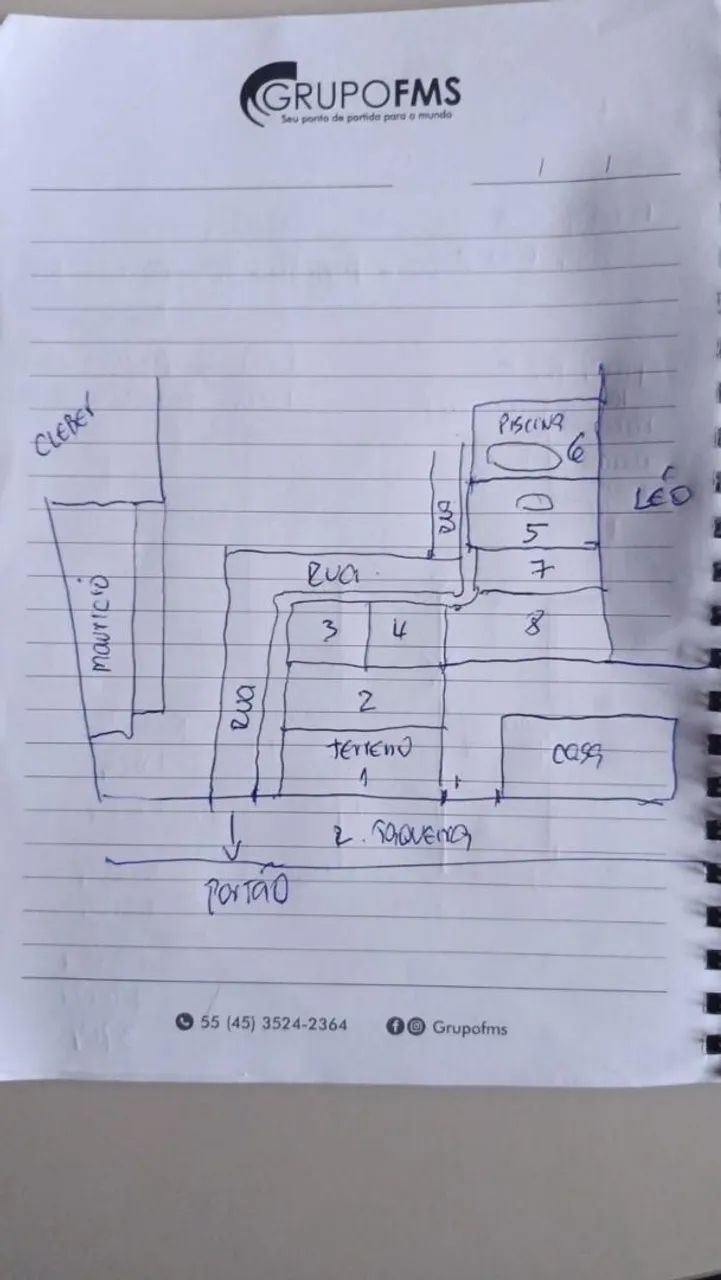 GRUPOFMS
Seu ponto de partida para o mundo
/ /
CLEBER
PISCINA
6
LÉO
RUA
5
7
RUA
mauricio
3
4
8
2
RUA
terreno
1
casa
PORTÃO
55 (45) 3524-2364
Grupofms